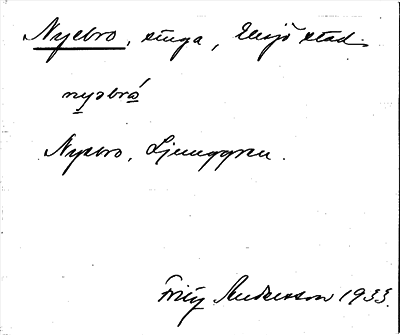 Nyebro, stuga, Eksjö stad.
nyəbró
Nyebro, Ljunggren.
Fritz Andersson 1933.